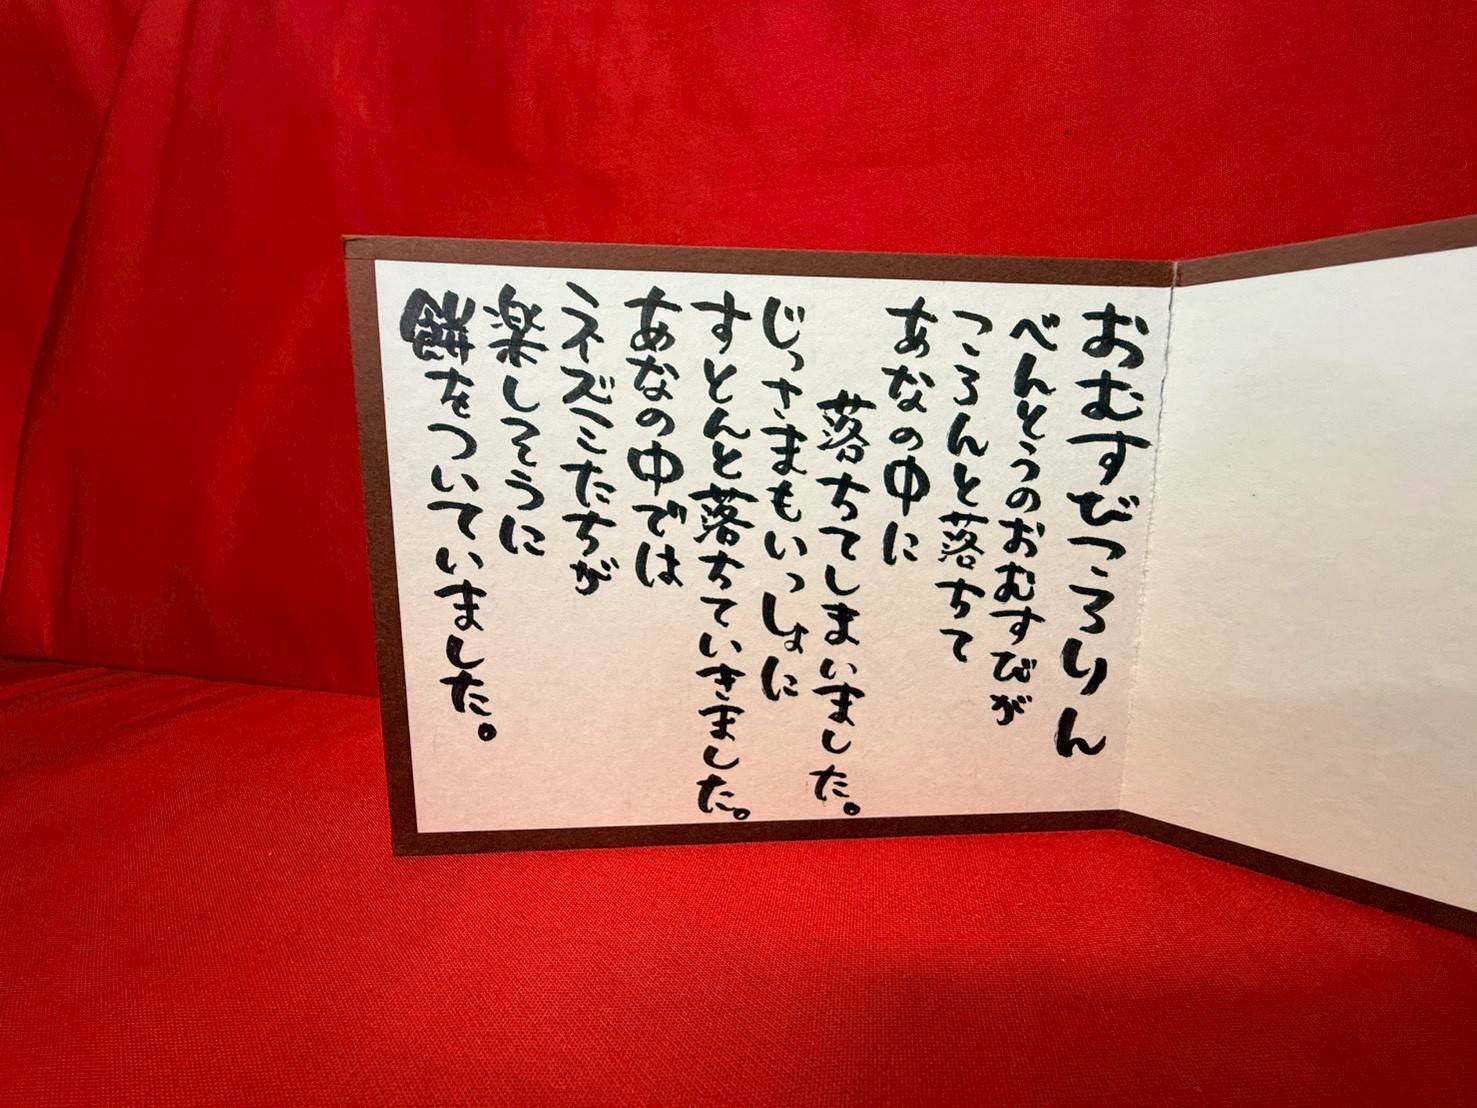 おむすびころりん
べんとうのおむすびが
ころんと落ちて
あなの中に
落ちてしまいました。
じっさまもいっしょに
すとんと落ちていきました。
あなの中では
ネズミたちが
楽しそうに
餅をついていました。